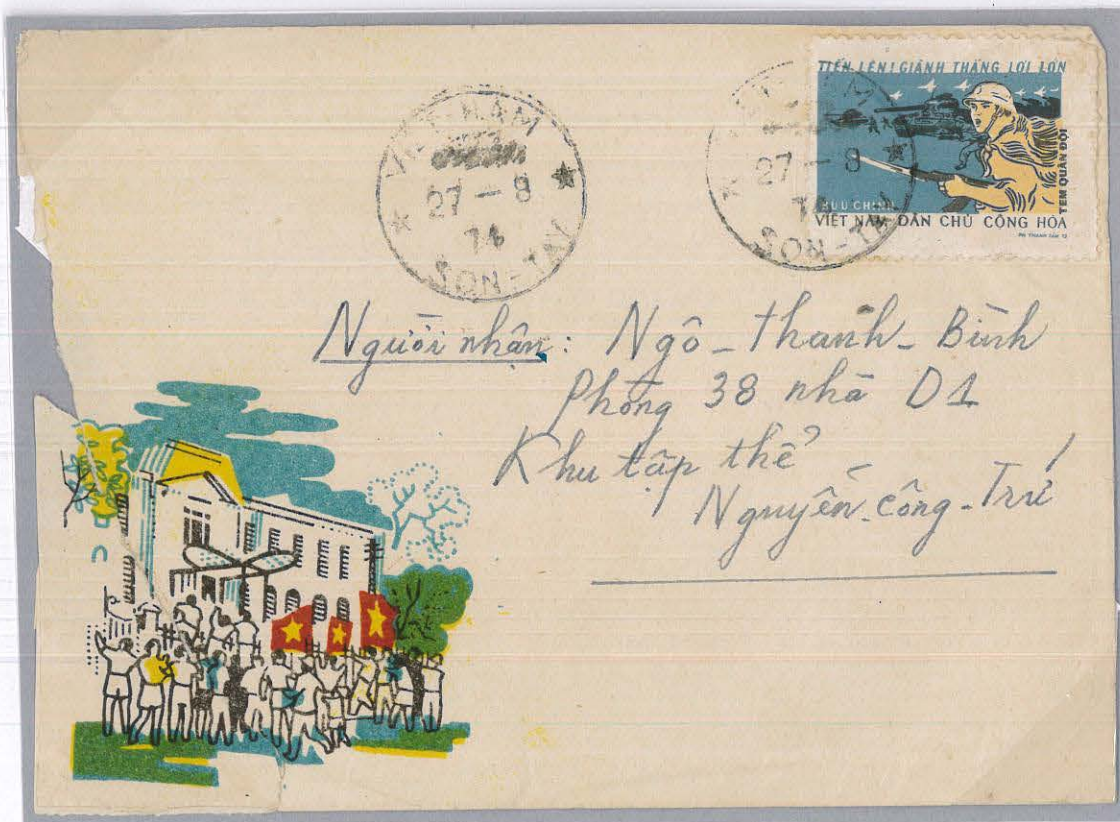 TIẾN LÊN! GIÀNH THẮNG LỢI LỚN
TEM QUÂN ĐỘI
BƯU CHÍNH
VIỆT NAM DÂN CHỦ CỘNG HÒA
VIET-NAM
27-8
74
SON-TAY
27-8
SON-TAY
Người nhận: Ngô-thanh-Bình
Phòng 38 nhà D1
Khu tập thể
Nguyễn-công-Trứ